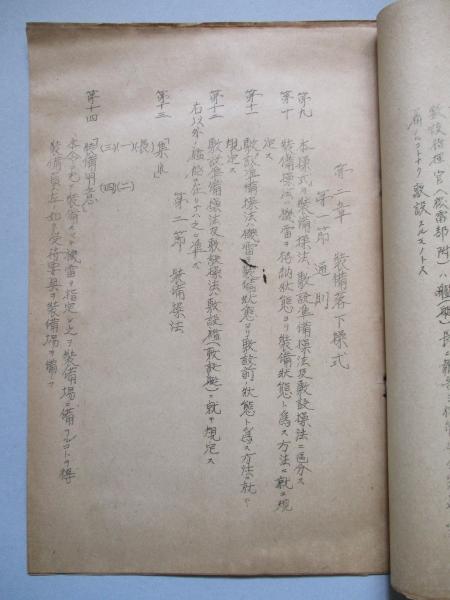 敷設指揮官(機雷部附)ハ艦(艇)長ノ
敷設スルモノトス
第二章 装備落下操式
第一節 通則
第九 本操式ヲ装備操法、敷設準備操法及敷設操法ニ区分ス
第十 装備操法ハ機雷ヲ格納状態ヨリ装備状態ト為ス方法ニ就テ規
定ス
第十一 敷設準備操法ハ機雷ヲ装備状態ヨリ敷設前ノ状態ト為ス方法ニ就テ
規定ス
第十二 敷設準備操法及敷設操法ハ敷設艦(敷設艇)ニ就テ規定ス
右以外ノ艦艇ニ在リテハ之ニ準ス
第二節 装備操法
第十三 「集レ」
(長)
(一)(二)
(三)(四)
第十四 「装備用意」
本令ニテ装備スベキ機雷ヲ指定シ之ヲ装備場ニ備フルコトヲ得
装備員左ノ如ク受持要具ヲ装備場ニ備フ